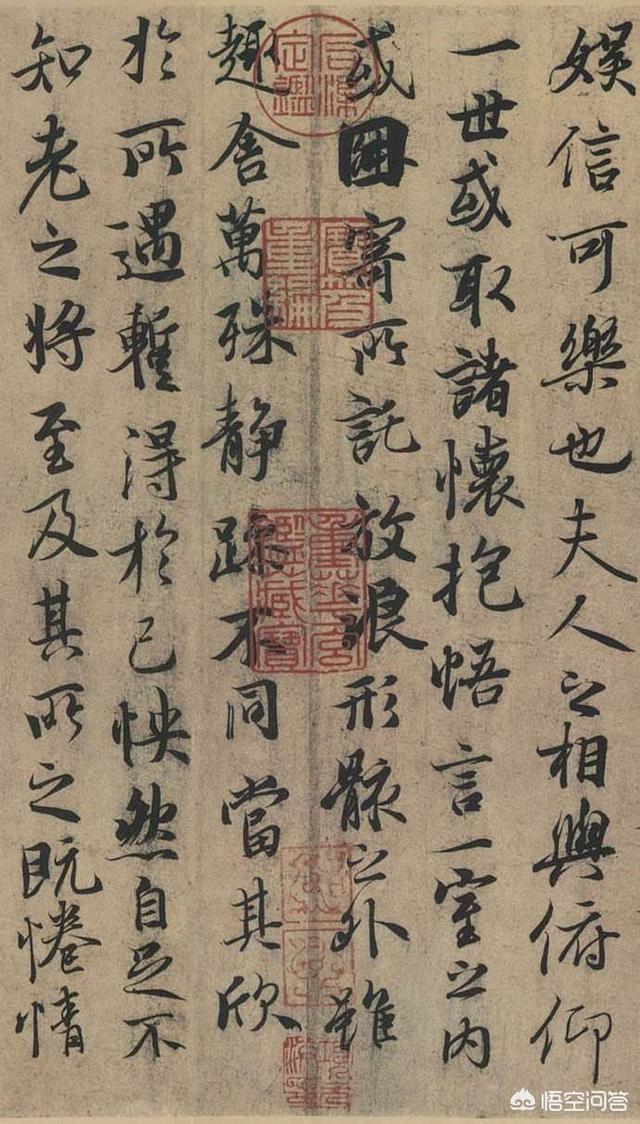 娱信可樂也夫人之相與俯仰
一世或取諸懷抱悟言一室之内
或因寄所託放浪形骸之外雖
趣舍萬殊静躁不同當其欣
於所遇暫得於己怏然自足不
知老之將至及其所之既惓情
悟空问答